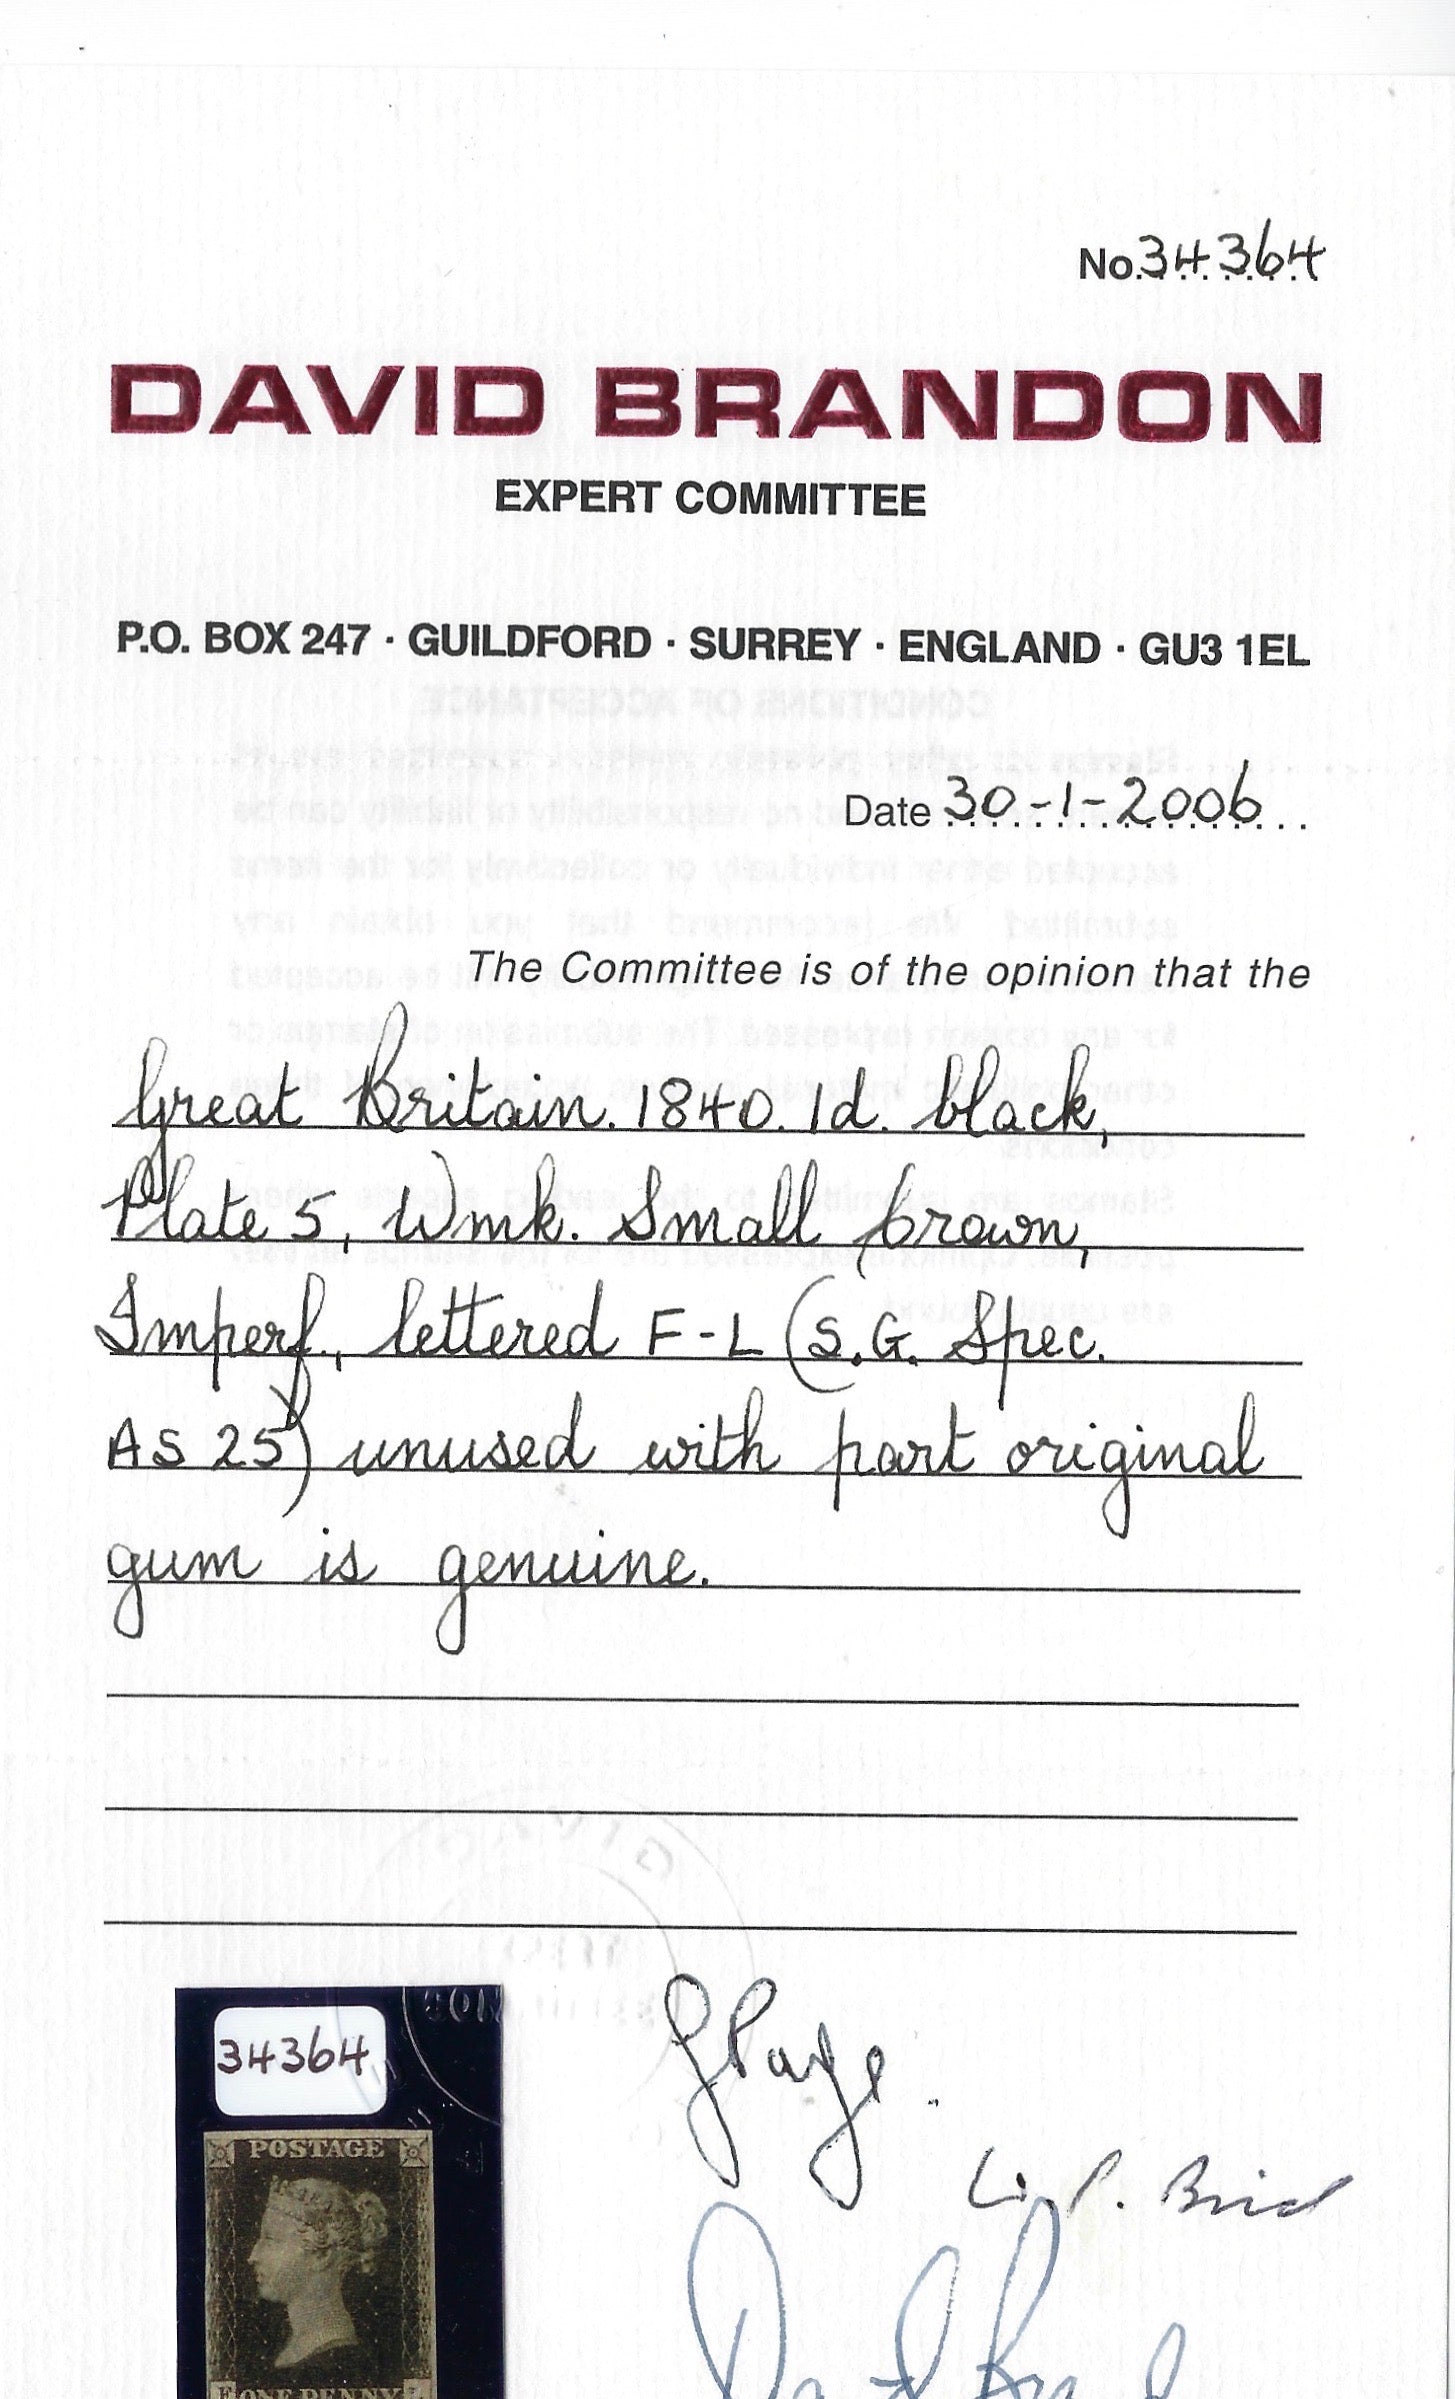 No. 34364
DAVID BRANDON
EXPERT COMMITTEE
P.O. BOX 247 · GUILDFORD · SURREY · ENGLAND · GU3 1EL
Date 30-1-2006
The Committee is of the opinion that the
Great Britain. 1840. 1d. black,
Plate 5, Wmk. Small Crown,
Imperf., lettered F-L (S.G. Spec.
AS 25) unused with part original
gum is genuine.
34364
POSTAGE
F ONE PENNY L